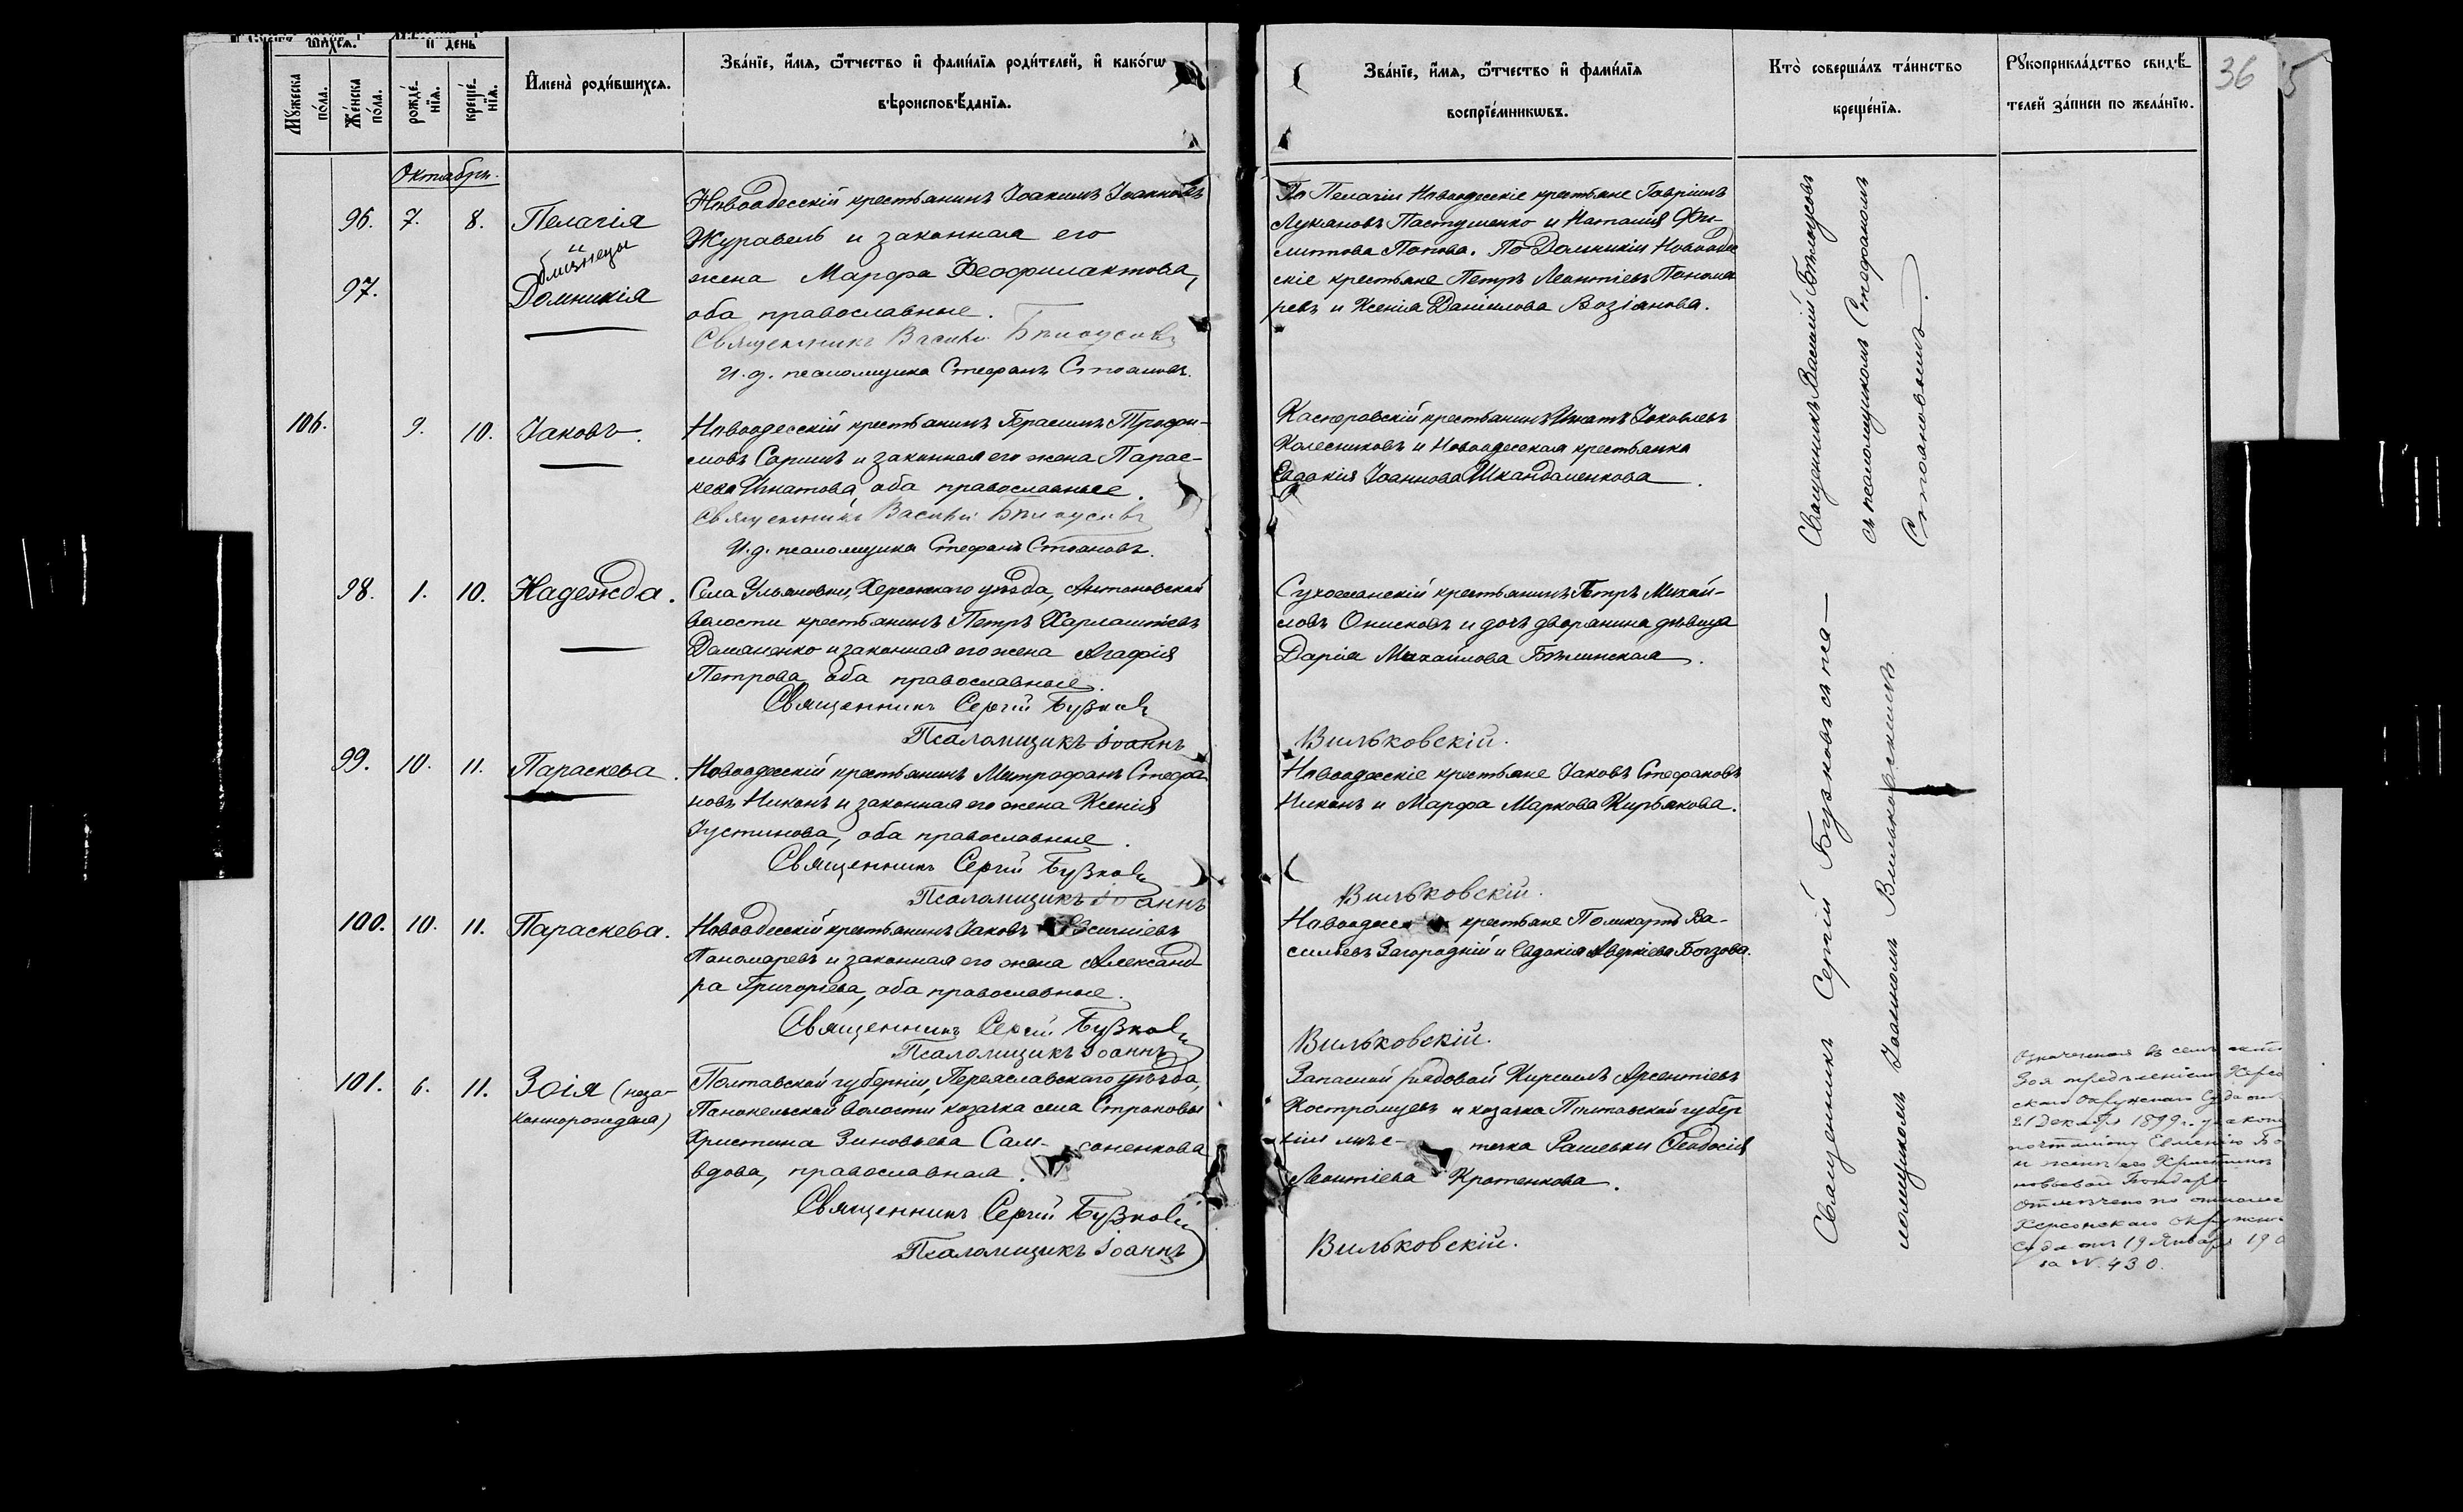 шихся.
и день
Мужеска пола.
Женска пола.
рожде́нїѧ.
креще́нїѧ.
И҆мена̀ роди́вшихсѧ.
Зва́нїе, и҆́мѧ, ѻ҆́тчество и҆ фами́лїѧ роди́телей, и҆ како́гѡ
вѣроисповѣ́данїѧ.
Октября.
96. 7. 8. Пелагія
близнецы
97. Домникія
Новоодесскій крестьянинъ Іоакимъ Іоанновъ
Журавель и законная его
жена Марфа Феофилактова,
оба православные.
Священникъ Василій Бѣлоусовъ
И.д. псаломщика Стефанъ Стояновъ.
106. 9. 10. Іаковъ.
Новоодесскій крестьянинъ Герасимъ Трофи-
мовъ и законная его жена Парас-
кева Игнатова, оба православные.
Священникъ Василій Бѣлоусовъ
И.д. псаломщика Стефанъ Стояновъ.
98. 1. 10. Надежда.
Села Ульяновки, Херсонскаго уѣзда, Антоновской
волости крестьянинъ Петръ Харлампіевъ
Даманенко и законная его жена Агафія
Петрова, оба православные.
Священникъ Сергій Бузковъ
Псаломщикъ Іоаннъ
99. 10. 11. Параскева.
Новоодесскій крестьянинъ Митрофанъ Стефа-
новъ Никонъ и законная его жена Ксенія
Іустинова, оба православные.
Священникъ Сергій Бузковъ
Псаломщикъ Іоаннъ
100. 10. 11. Параскева.
Новоодесскій крестьянинъ Іаковъ
Пономаревъ и законная его жена Александ-
ра Григоріева, оба православные.
Священникъ Сергій Бузковъ
Псаломщикъ Іоаннъ
101. 6. 11. Зоія (неза-
коннорожденa)
Полтавской губерніи, Переяславскаго уѣзда,
волости козачка села
Христина Зиновьева Сам- соненкова
вдова, православная.
Священникъ Сергій Бузковъ
Псаломщикъ Іоаннъ
Зва́нїе, и҆́мѧ, ѻ҆́тчество и҆ фами́лїѧ
воспрїе́мникѡвъ.
Кто̀ соверша́лъ та́инство
креще́нїѧ.
Рꙋкоприкла́дство свидѣ́-
телей за́писи по жела́нїю.
36
5
По Пелагіи Новоодесскіе крестьяне Гавріилъ
Лукіановъ Пастушенко и Наталія Фи-
липпова Попова. По Домникіи Новоодес
скіе крестьяне Петръ Леонтіевъ Понома
ревъ и Ксенія Даніилова Возіанова.
Касперовскій крестьянинъ Игнатъ Іаковлевъ
Колесниковъ и Новоодесская крестьянка
Евдокія Іоаннова Шкандаленкова.
Сухоеланскій крестьянинъ Петръ Михаи-
ловъ Онисковъ и дочь дворянина дѣвица
Дарія Михайлова Бѣлинская.
Вильковскій.
Новоодесскіе крестьяне Іаковъ Стефановъ
Никонъ и Марфа Маркова Кирьякова.
Вильковскій.
Новоодесс крестьяне Поликарпъ Ва-
сильевъ Загородній и Евдокія Аверкіева
Вильковскій.
Запасный рядовой Кириллъ Арсентіевъ
Костромцевъ и козачка Полтавской губер
ніи мѣс- течка Рашевки Феодосія
Леонтіева Кротенкова.
Вильковскій.
Священникъ Василій Бѣлоусовъ
съ псаломщикомъ Стефаномъ
Стояновымъ.
Священникъ Сергій Бузковъ съ пса-
ломщикомъ Іоанномъ Вильковскимъ.
Означенная въ семъ актѣ
Зоя опредѣленіемъ Херсо
скаго Окружнаго Суда отъ
21 Декабря 1899 г. узаконе
почталіону Евменію Бо
и женѣ его Христинѣ
новьевой Бондарь
Отмѣчено по отноше
Херсонскаго Окружно
Суда отъ 19 Января 190
за N. 430.